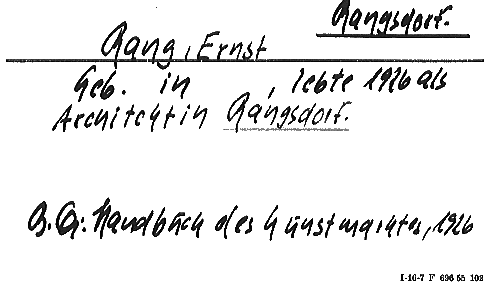 Rangsdorf.
Rang, Ernst
Geb. in , lebte 1926 als
Architekt in Rangsdorf.
B.Q: Handbuch des Kunstmarktes, 1926
I-16-7 F 696 55 103